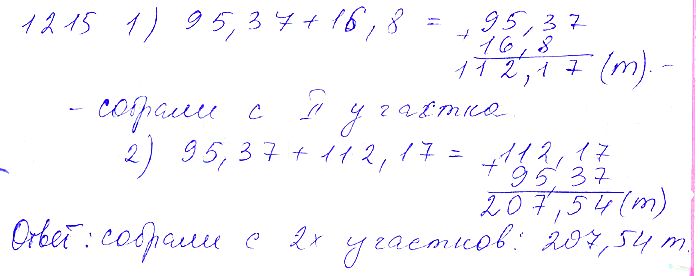 1215 1) 95,37 + 16,8 = + 95,37
16,8
112,17 (т). -
- собрали с II участка
2) 95,37 + 112,17 = + 112,17
95,37
207,54 (т)
Ответ: собрали с 2х участков: 207,54 т.